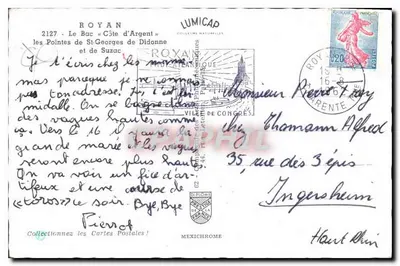 ROYAN
2127 - Le Bac "Côte d'Argent"
les Pointes de St-Georges de Didonne
et de Suzac
LUMICAP
ROYAN
VILLE DE CONGRÈS
0,20
ROYAN
CHARENTE
Je t'écris chez les
mais parceque je ne connais
pas ton adresse. Ici, c'est for
midable. On se baigne dans
des vagues hautes comme
ça. Vers le 16 il y aura la
grande marée et les vagues
seront encore plus hautes.
On va voir un feu d'ar
tifices et une course de
"toros" ce soir. Bye, Bye
Pierrot
Monsieur Pierre Fray
chez Thomann Alfred
35, rue des 3 épis
Ingersheim
Haut Rhin
Collectionnez les Cartes Postales !
MEXICHROME